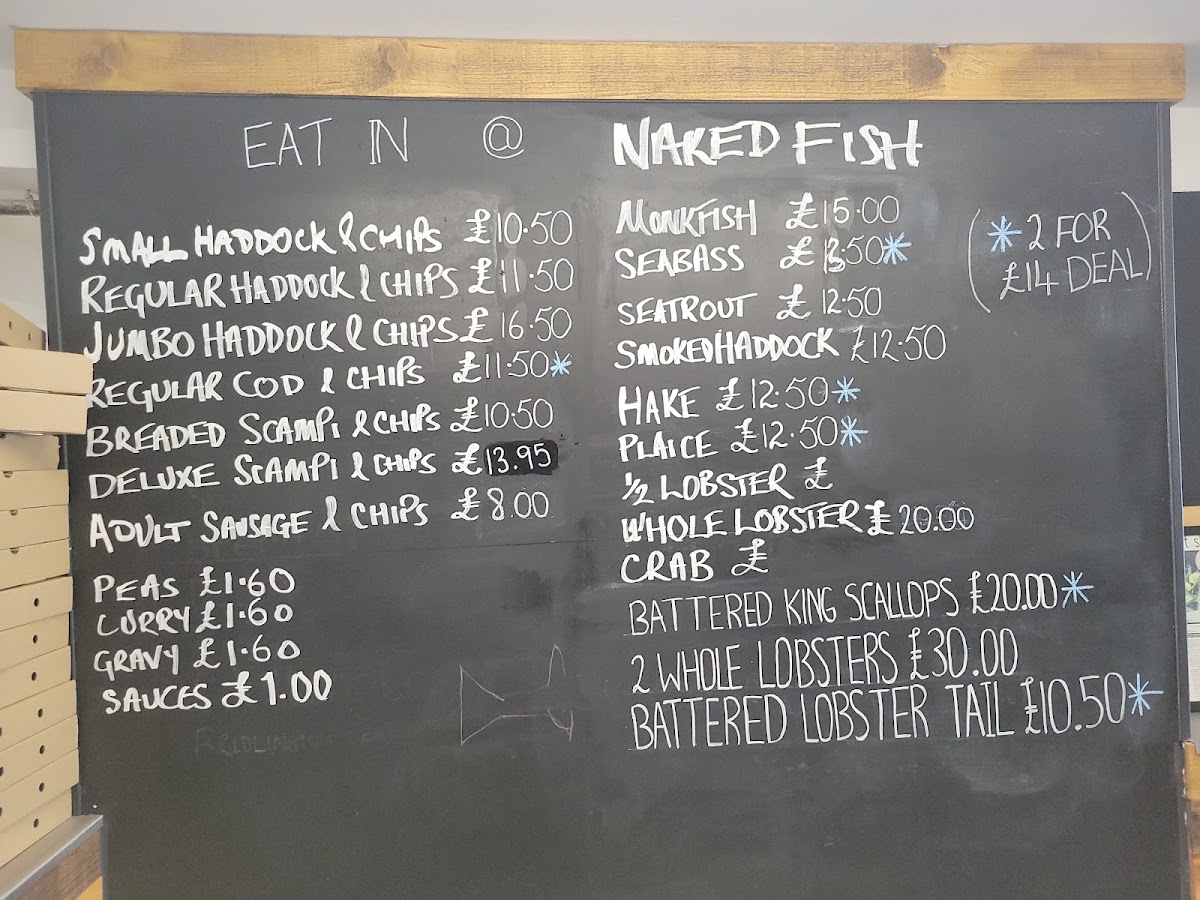 EAT IN @
SMALL HADDOCK & CHIPS £10.50
REGULAR HADDOCK & CHIPS £11.50
JUMBO HADDOCK & CHIPS £16.50
REGULAR COD & CHIPS £11.50*
BREADED SCAMPI & CHIPS £10.50
DELUXE SCAMPI & CHIPS £13.95
ADULT SAUSAGE & CHIPS £8.00
PEAS £1.60
CURRY £1.60
GRAVY £1.60
SAUCES £1.00
BRIDLINGTON
NAKED FISH
MONKFISH £15.00
SEABASS £13.50*
SEATROUT £12.50
SMOKED HADDOCK £12.50
HAKE £12.50*
PLAICE £12.50*
1/2 LOBSTER £
WHOLE LOBSTER £20.00
CRAB £
BATTERED KING SCALLOPS £20.00*
2 WHOLE LOBSTERS £30.00
BATTERED LOBSTER TAIL £10.50*
(* 2 FOR
£14 DEAL)